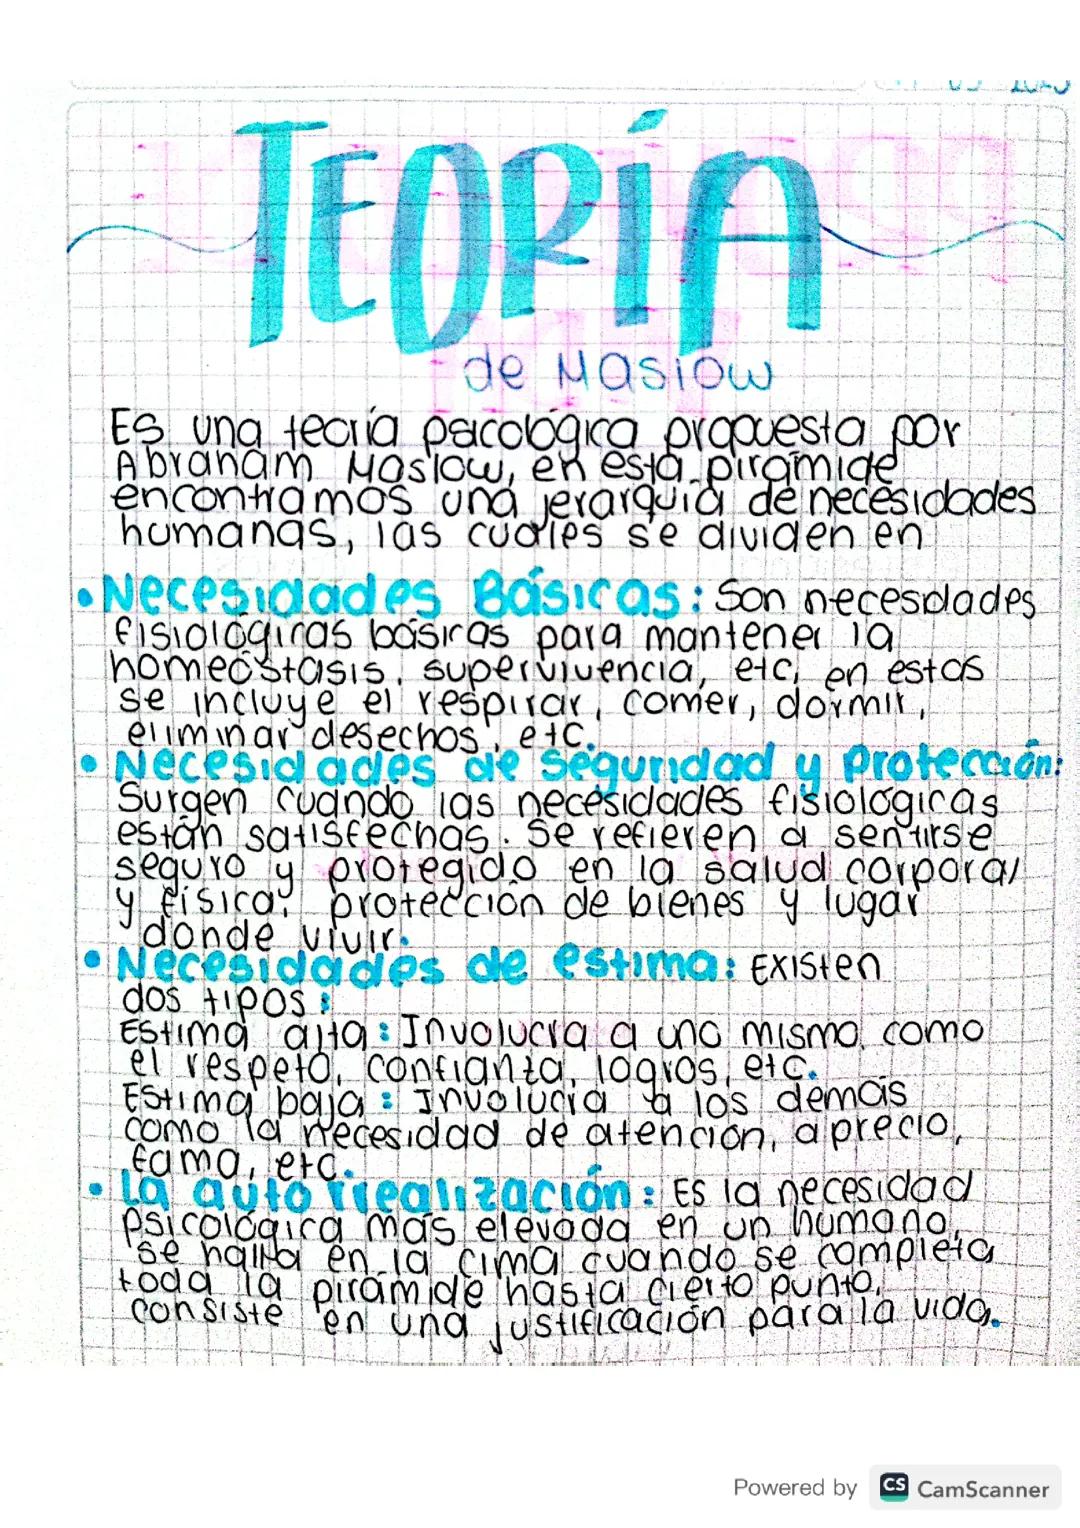 TEORÍA
de Maslow
Es una teoría psicológica propuesta por
Abraham Maslow, en esta pirámide
encontramos una jerarquía de necesidades
humanas, las cuales se dividen en
• Necesidades Básicas: Son necesidades
fisiológicas básicas para mantener la
homeóstasis, supervivencia, etc, en estas
se incluye el respirar, comer, dormir,
eliminar desechos, etc.
• Necesidades de seguridad y Protección:
Surgen cuando las necesidades fisiológicas
están satisfechas. Se refieren a sentirse
seguro y protegido en la salud corporal
y física, protección de bienes y lugar
donde vivir.
• Necesidades de estima: Existen
dos tipos:
Estima alta: Involucra a uno mismo, como
el respeto, confianza, logros, etc.
Estima baja: Involucra a los demás
como la necesidad de atención, aprecio,
fama, etc.
• La auto rrealización: Es la necesidad
psicológica más elevada en un humano,
se halla en la cima cuando se completa
toda la pirámide hasta cierto punto,
consiste en una justificación para la vida.
Powered by CS CamScanner